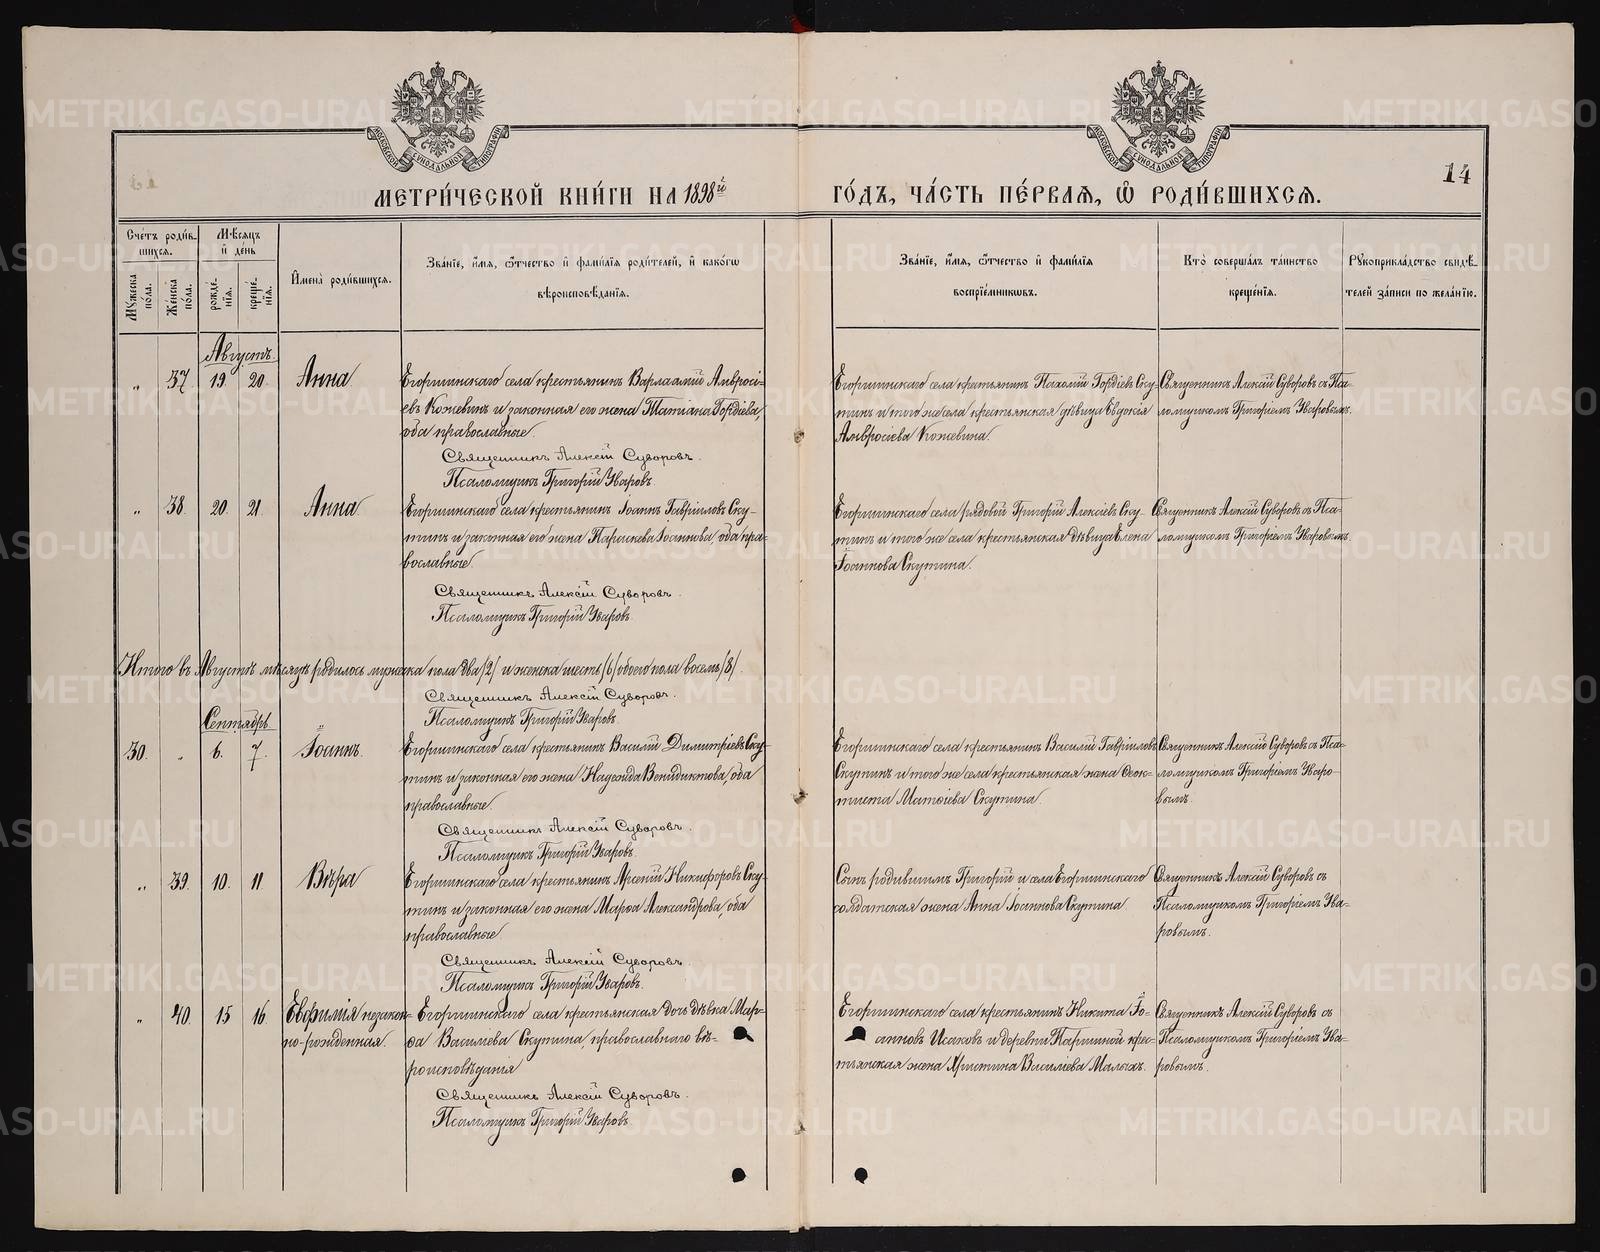 МЕТРИ́ЧЕСКОЙ КНИ́ГИ НА 1898й ГО́ДЪ, ЧА́СТЬ ПЕ́РВАЯ, Ѽ РОДИ́ВШИХСЯ.
14
Счéтъ роди́в-
шихся.
Мѣ́сяцъ
и҆ де́нь
Мꙋ́жеска по́ла.
Же́нска по́ла.
рожде́нїѧ.
креще́нїѧ.
И҆мена̀ роди́вшихся.
Зва́нїе, и҆́мя, ѻ҆́тчество и҆ фами́лїя роди́телей, и҆ како́гѡ
вѣроисповѣ́данїя.
Зва́нїе, и҆́мя, ѻ҆́тчество и҆ фами́лїя
воспрїе́мникѡвъ.
Кто̀ соверша́лъ та́инство
креще́нїя.
Рꙋкоприкла́дство свидѣ́-
телей за́писи по жела́нїю.
Августъ.
„ 37. 19 20. Анна
Егоршинскаго села крестьянинъ Варлаамій Амвросі-
евъ Кожевинъ и законная его жена Татіана Гордіева,
оба православные.
Священникъ Алексій Суворовъ.
Псаломщикъ Григорій Уваровъ.
Егоршинскаго села крестьянинъ Пахомій Гордіевъ Ску-
тинъ и того же села крестьянская дѣвица Евдокія
Амвросіева Кожевина.
Священникъ Алексій Суворовъ съ Пса-
ломщикомъ Григоріемъ Уваровымъ.
„ 38. 20. 21. Анна
Егоршинскаго села крестьянинъ Іоаннъ Гавріиловъ Ску-
тинъ и законная его жена Параскева Іоаннова, оба пра-
вославные.
Священникъ Алексій Суворовъ.
Псаломщикъ Григорій Уваровъ.
Егоршинскаго села рядовой Григорій Алексіевъ Ску-
тинъ и того же села крестьянская дѣвица Елена
Іоаннова Скутина.
Священникъ Алексій Суворовъ съ Пса-
ломщикомъ Григоріемъ Уваровымъ.
Итого въ Августѣ мѣсяцѣ родилось мужеска пола два /2/ и женска шесть /6/ обоего пола восемь /8/.
Священникъ Алексій Суворовъ.
Псаломщикъ Григорій Уваровъ.
Сентябрь.
30. „ 6. 7. Іоаннъ.
Егоршинскаго села крестьянинъ Василій Димитріевъ Ску-
тинъ и законная его жена Надежда Венидиктова, оба
православные.
Священникъ Алексій Суворовъ.
Псаломщикъ Григорій Уваровъ.
Егоршинскаго села крестьянинъ Василій Гавріиловъ
Скутинъ и того же села крестьянская жена Ѳеок-
тиста Матѳіева Скутина.
Священникъ Алексій Суворовъ съ Пса-
ломщикомъ Григоріемъ Уваро-
вымъ.
„ 39. 10. 11 Вѣра
Егоршинскаго села крестьянинъ Арсеній Никифоровъ Ску-
тинъ и законная его жена Марѳа Александрова, оба
православные.
Священникъ Алексій Суворовъ.
Псаломщикъ Григорій Уваровъ.
Сынъ родившимъ Григорій и села Егоршинскаго
солдатская жена Анна Іоаннова Скутина.
Священникъ Алексій Суворовъ съ
Псаломщикомъ Григоріемъ Ува-
ровымъ.
„ 40. 15 16. Евфимія незакон-
но-рожденная.
Егоршинскаго села крестьянская дочь дѣвка Мар-
ѳа Васильева Скутина, православнаго вѣ-
роисповѣданія
Священникъ Алексій Суворовъ.
Псаломщикъ Григорій Уваровъ.
Егоршинскаго села крестьянинъ Никита Іо-
анновъ Исаковъ и деревни Паршиной крес-
тьянская жена Христина Васильева Малыхъ.
Священникъ Алексій Суворовъ съ
Псаломщикомъ Григоріемъ Ува-
ровымъ.
METRIKI.GASO-URAL.RU